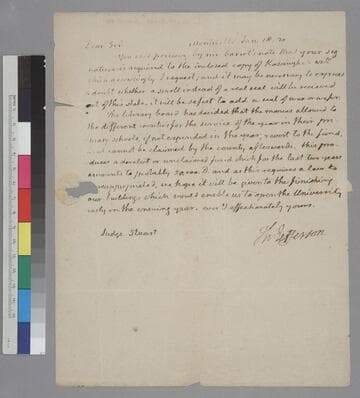 Dear Sir Monticello Jan. 18. 20
You will percieve by mr Garrot's note that your sig-
nature is required to the inclosed copy of Kosciuzko's will
which accordingly I request; and it may be necessary to express
a doubt whether a scroll instead of a real seal will be recieved
out of this state, it will be safest to add a seal of wax or wafer.
The literary board has decided that the monies allowed to
the different counties for the service of the year in their pri-
mary schools, if not expended in the year, revert to the fund,
and cannot be claimed by the county afterwards. this pro-
duces a derelict or unclaimed fund which for the last two years
amounts to probably D. and as this requires a law to
reappropriate it, we hope it will be given to the finishing
our buildings which would enable us to open the University
early in the ensuing year. ever & affectionately yours.
Th: Jefferson
Judge Stuart